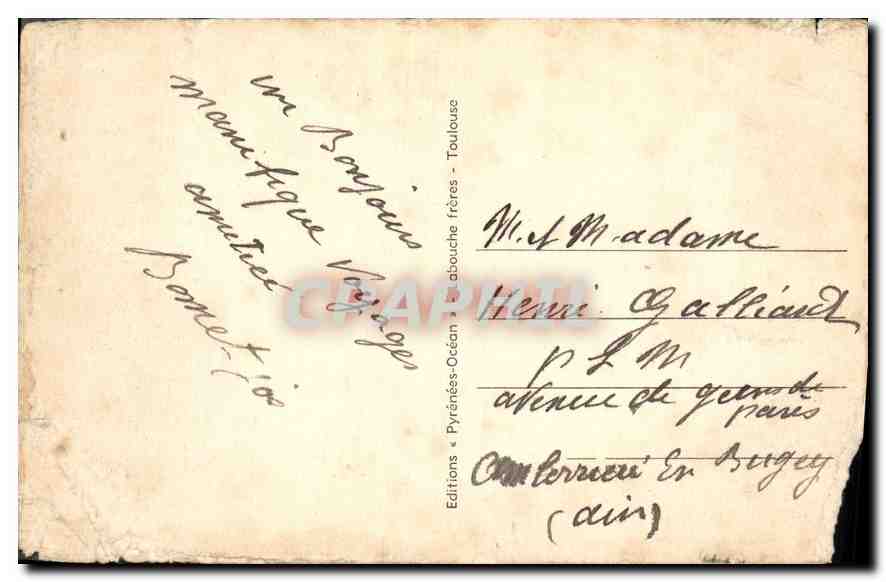 un Bonjours
manifique Voyages
amitiée
Bonnet
Editions « Pyrénées-Océan » - Labouche frères - Toulouse
M. et Madame
Henri Galliard
P L M
avenue de
paris
En Bugey
(ain)
CPAPHIL